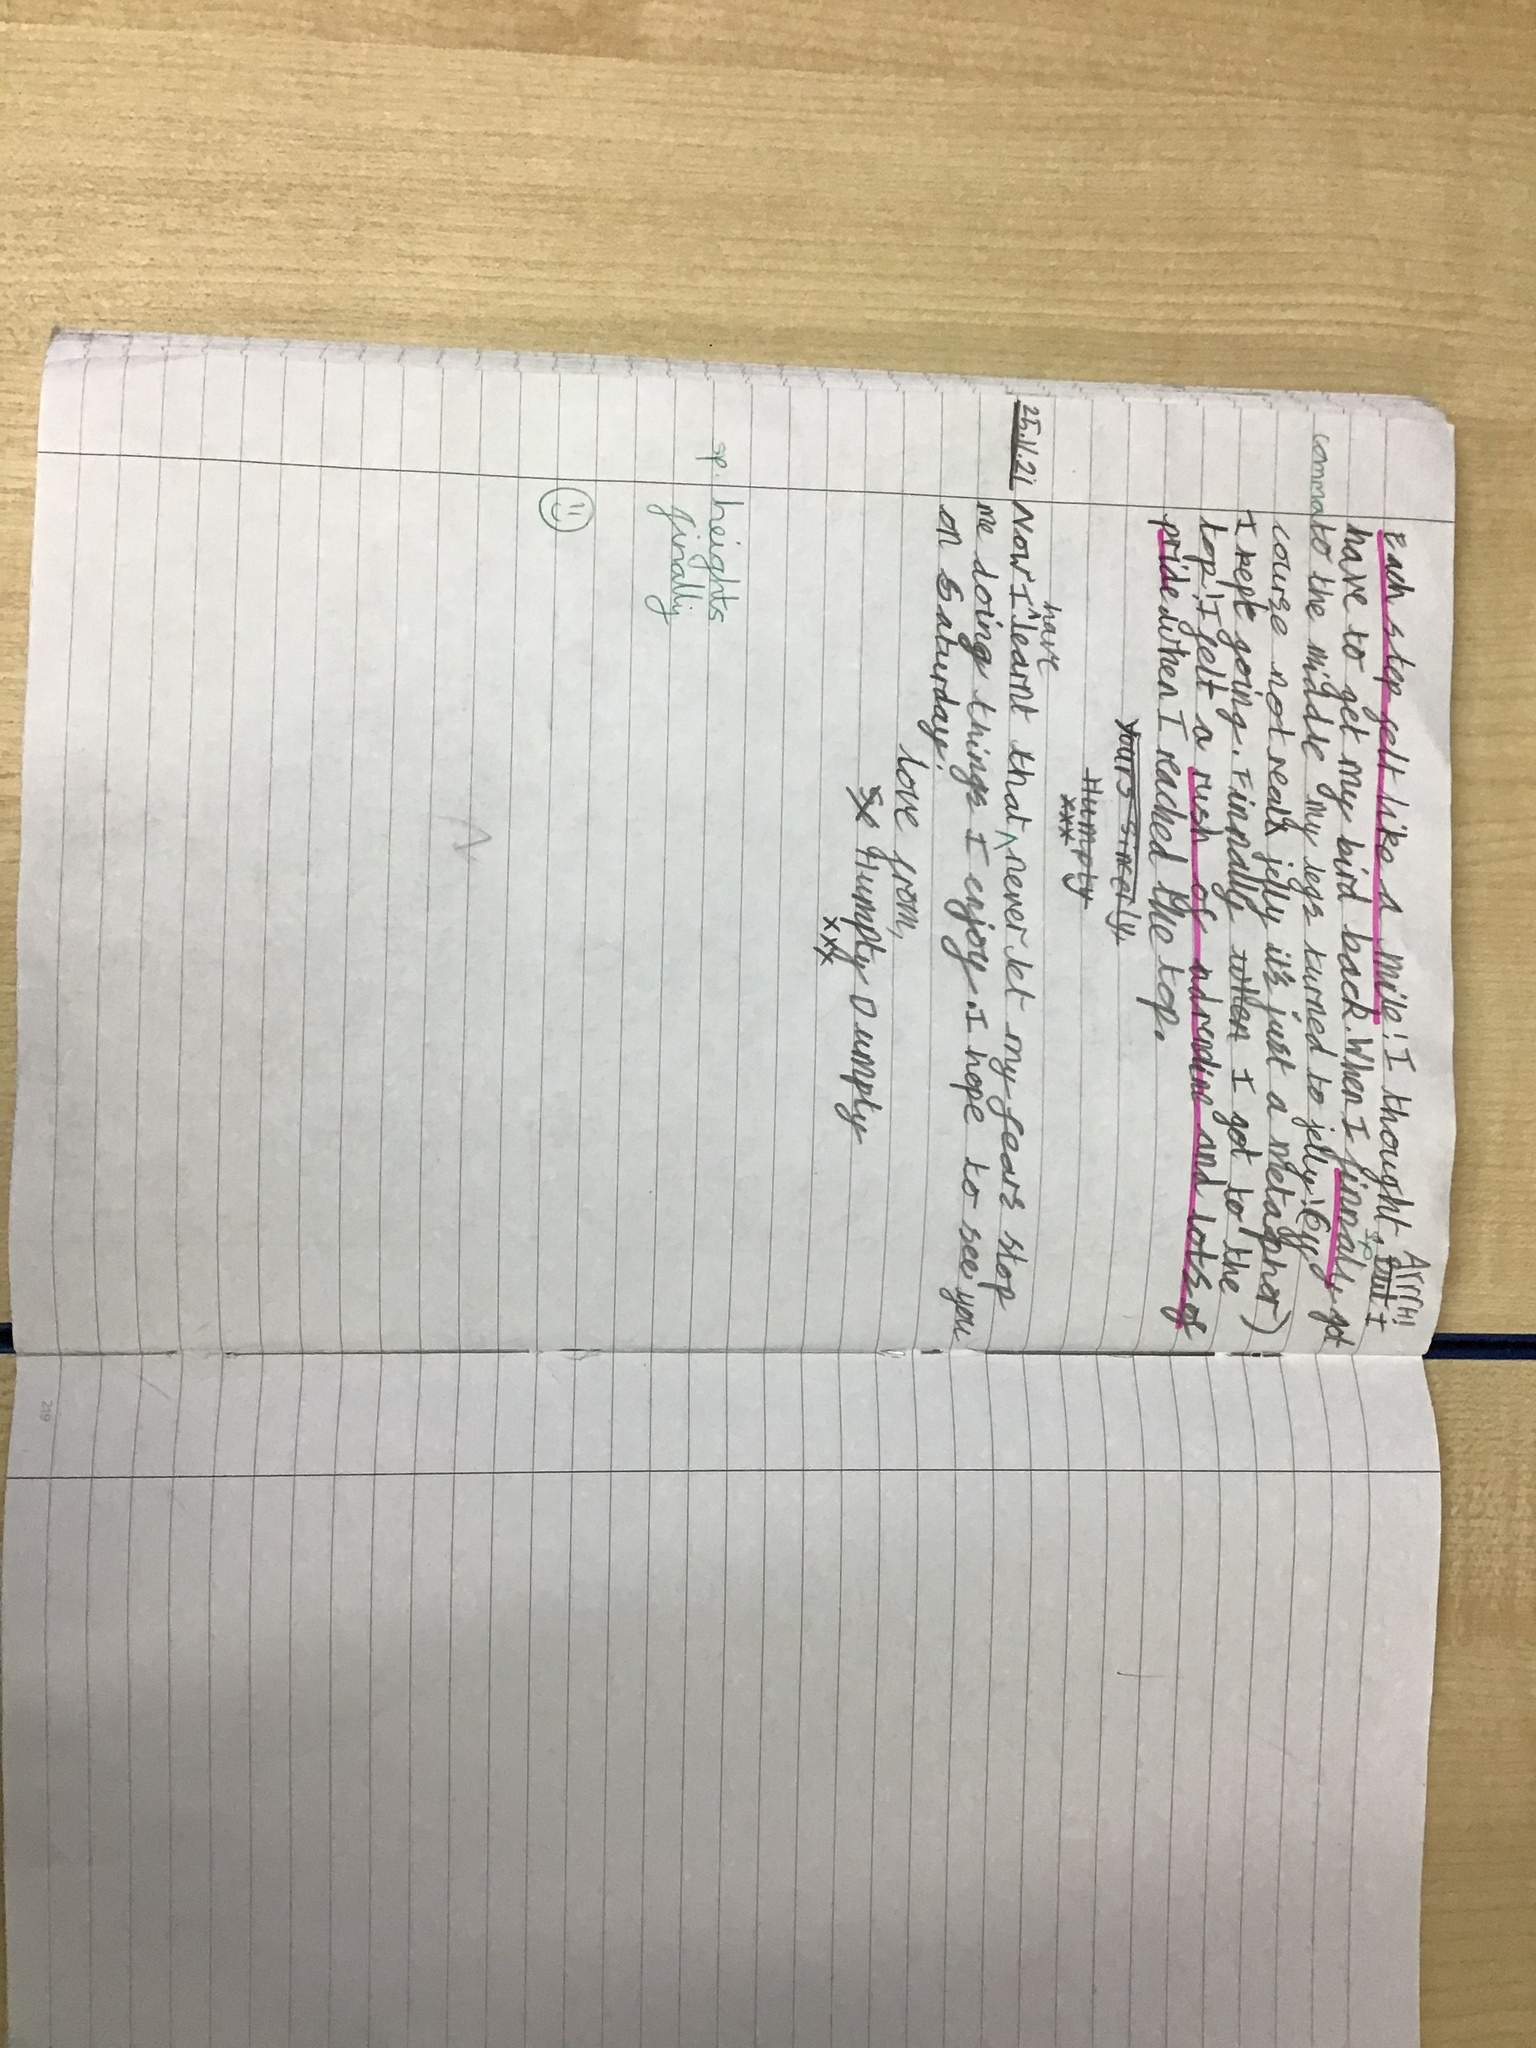 Arrrh!
Each step felt like a mile! I thought, but I
sp
have to get my bird back. When I finnaly got
comma to the middle my legs turned to jelly! (of
course not realy jelly it's just a metaphor)
I kept going. Finnally when I got to the
top! I felt a rush of adrenline and lots of
pride when I reached the top.
Yours sincerly,
Humpty
xxx
have
25.11.21 Now I ^ learnt that ^ never let my fears stop
me doing things I enjoy. I hope to see you
on Saturday.
Love from,
Humpty Dumpty
xxx
sp. heights
finally
219